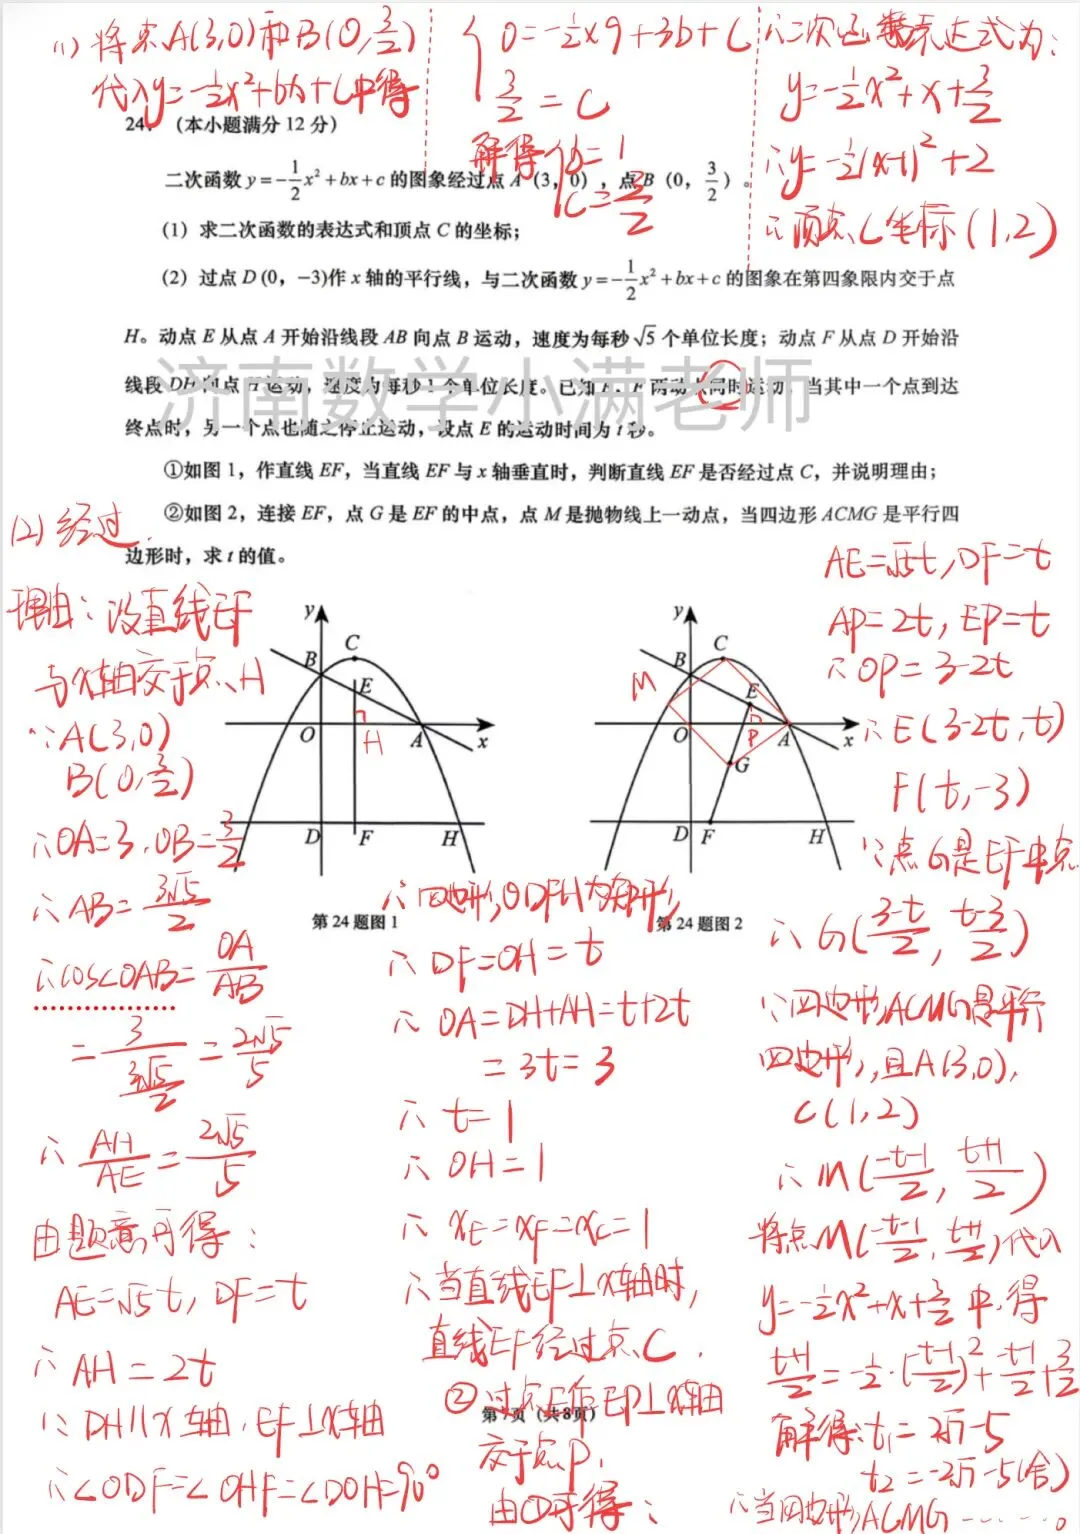 (1) 将点A(3,0)和B(0,3/2)
代入y=-1/2x²+bx+c中得
0=-1/2×9+3b+c
3/2=c
解得 b=1
c=3/2
∴二次函数表达式为:
y=-1/2x²+x+3/2
∴y=-1/2(x-1)²+2
∴顶点C坐标(1,2)
24.（本小题满分 12 分）
二次函数 y=-1/2x²+bx+c 的图象经过点 A（3, 0），点 B（0, 3/2）。
(1) 求二次函数的表达式和顶点 C 的坐标；
(2) 过点 D (0，-3)作 x 轴的平行线，与二次函数 y=-1/2x²+bx+c 的图象在第四象限内交于点
H。动点 E 从点 A 开始沿线段 AB 向点 B 运动，速度为每秒√5 个单位长度；动点 F 从点 D 开始沿
线段 DH 向点 H 运动，速度为每秒 1 个单位长度。已知 E、F 两动点同时运动，当其中一个点到达
终点时，另一个点也随之停止运动，设点 E 的运动时间为 t 秒。
济南数学小满老师
①如图 1，作直线 EF，当直线 EF 与 x 轴垂直时，判断直线 EF 是否经过点 C，并说明理由；
②如图 2，连接 EF，点 G 是 EF 的中点，点 M 是抛物线上一动点，当四边形 ACMG 是平行四
边形时，求 t 的值。
(2) 经过.
理由: 设直线EF
与x轴交于点H
∵A(3,0)
B(0,3/2)
∴OA=3,OB=3/2
∴AB=3√5/2
∴cos∠OAB=OA/AB
=3/(3√5/2)=2√5/5
∴AH/AE=2√5/5
由题意可得:
AE=√5t, DF=t
∴AH=2t
∵DH∥x轴, EF⊥x轴
∴∠ODF=∠OHF=∠DOH=90°
y
C
B
E
O
H
A
x
D
F
H
第 24 题图 1
y
C
B
M
E
O
P
A
x
G
D
F
H
第 24 题图 2
∴四边形ODFH为矩形
∴DF=OH=t
∴OA=DH+AH=t+2t
=3t=3
∴t=1
∴OH=1
∴xE=xF=xC=1
∴当直线EF⊥x轴时,
直线EF经过点C.
②过点E作EP⊥x轴
交于点P,
由①可得:
第 7 页（共 8 页）
AE=√5t, DF=t
AP=2t, EP=t
∴OP=3-2t
∴E(3-2t, t)
F(t,-3)
∵点G是EF中点
∴G((3-t)/2, (t-3)/2)
∵四边形ACMG是平行
四边形,且A(3,0),
C(1,2)
∴M((-t-1)/2, (t+1)/2)
将点M((-t-1)/2, (t+1)/2)代入
y=-1/2x²+x+3/2中,得
(t+1)/2=-1/2·((-t-1)/2)²+(-t-1)/2+3/2
解得:t₁=2√7-5
t₂=-2√7-5(舍)
∴当四边形ACMG……。